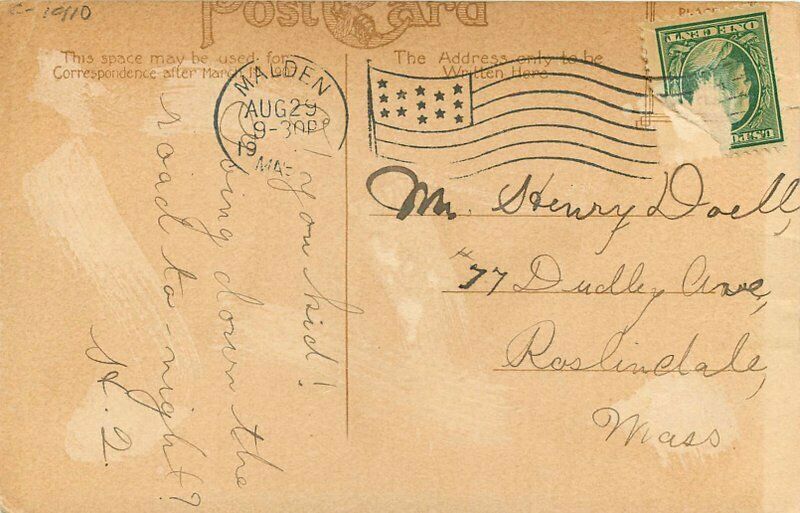 c-1910
Post Card
This space may be used for
Correspondence after March 1
The Address only to be
Written Here
PLACE
U.S. PO
ONE CENT
MALDEN
AUG 29
9-30P
19
MAS
Mr. Henry Doell,
#77 Dudley Ave,
Roslindale,
Mass
you kid!
going down the
road to-night?
H. Q.